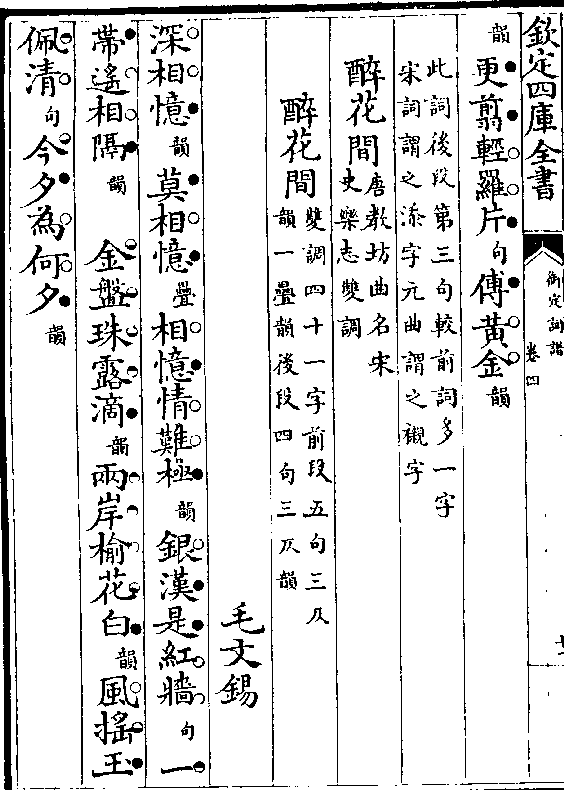 欽定四庫全書
御定詞譜
卷四
韻更翦輕羅片句傅黃金韻
此詞後段第三句較前詞多一字
宋詞謂之添字元曲謂之襯字
醉花間唐教坊曲名宋
史樂志雙調
醉花間雙調四十一字前段五句三仄
韻一疊韻後段四句三仄韻
毛文錫
深相憶韻莫相憶疊相憶情難極韻銀漢是紅牆句一
帶遙相隔韻金盤珠露滴韻兩岸榆花白韻風搖玉
佩清句今夕為何夕韻